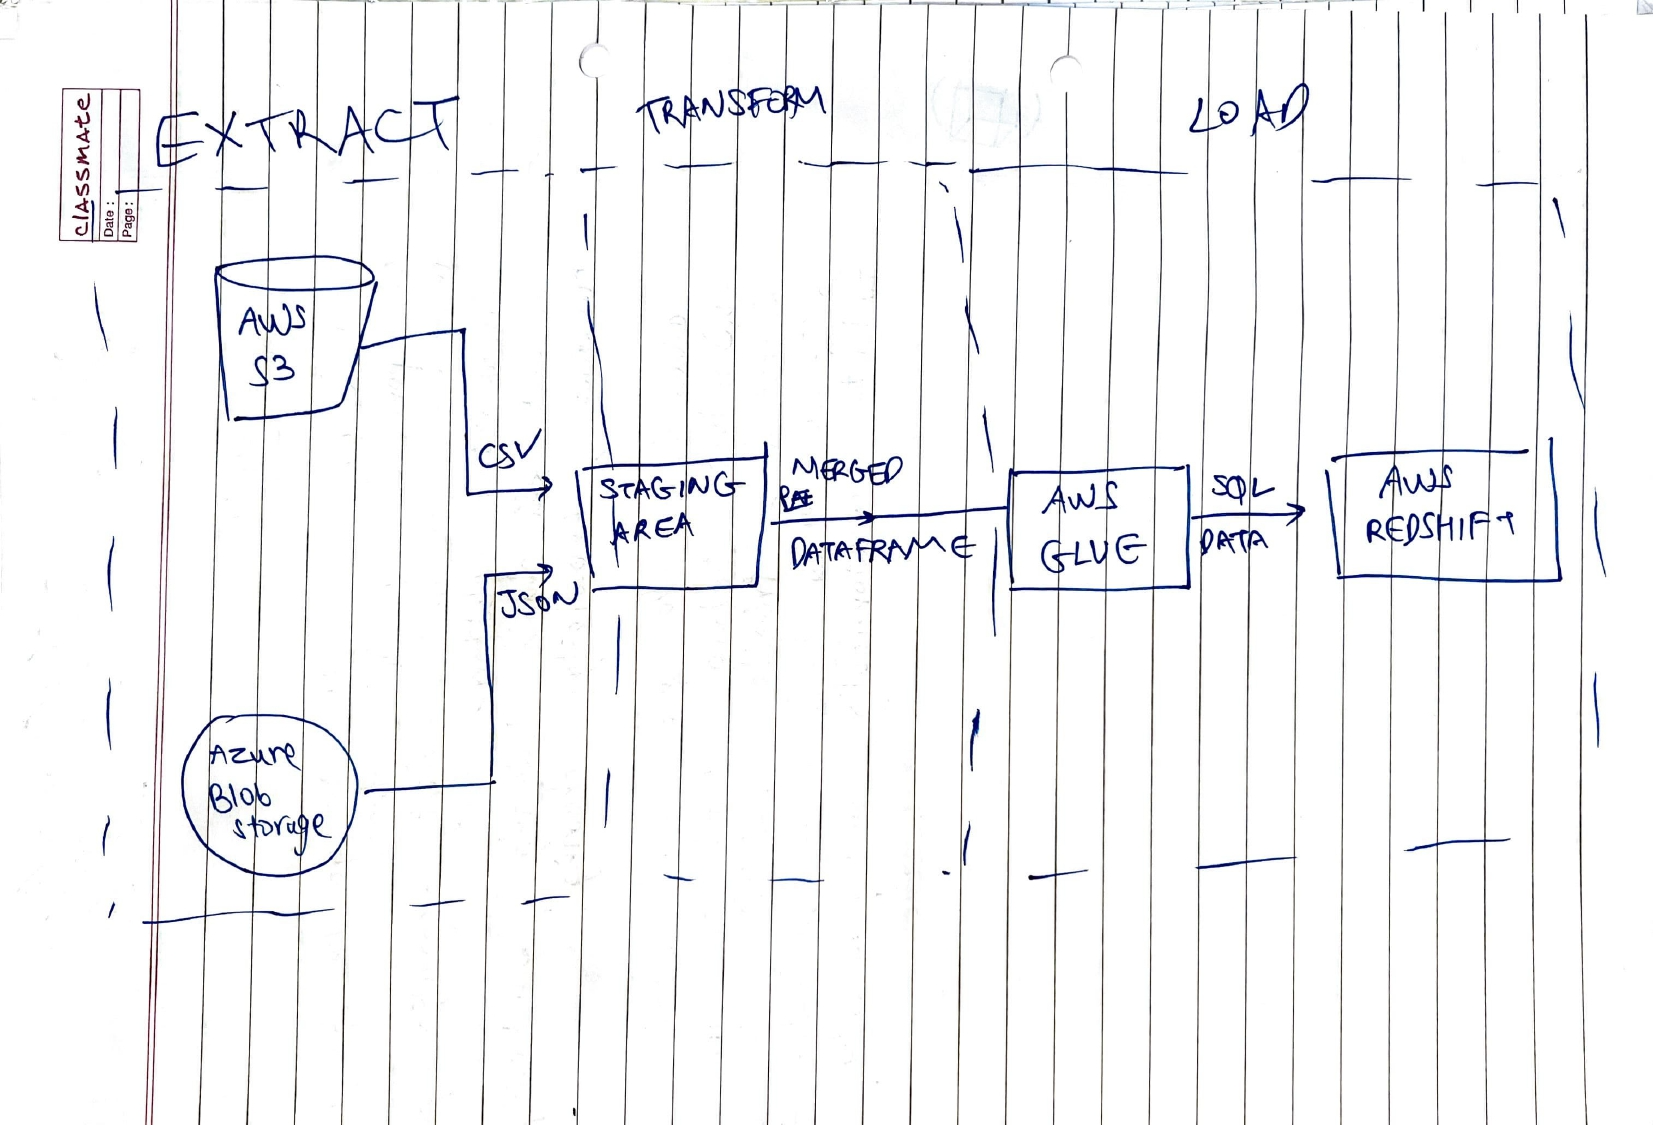 classmate
Date :
Page :
EXTRACT
TRANSFORM
LOAD
AWS
S3
CSV
STAGING
AREA
JSON
Azure
Blob
storage
MERGED
DATAFRAME
AWS
GLUE
SQL
DATA
AWS
REDSHIFT